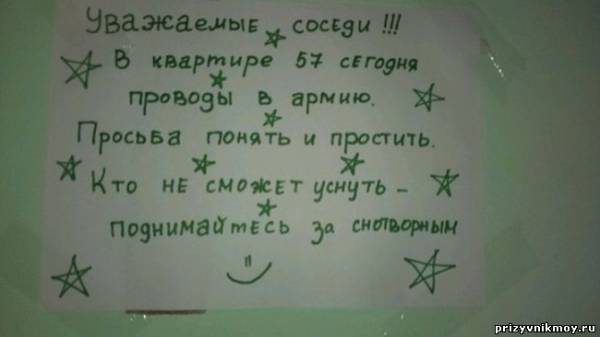 Уважаемые соседи !!!
В квартире 57 сегодня
проводы в армию.
Просьба понять и простить.
Кто не сможет уснуть –
поднимайтесь за снотворным
prizyvnikmoy.ru